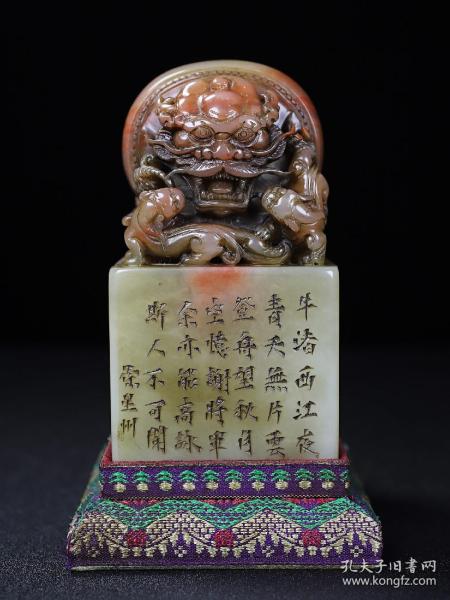 牛渚西江夜
青天無片雲
登舟望秋月
空憶謝將軍
余亦能高詠
斯人不可聞
崇星州
孔夫子旧书网
www.kongfz.com